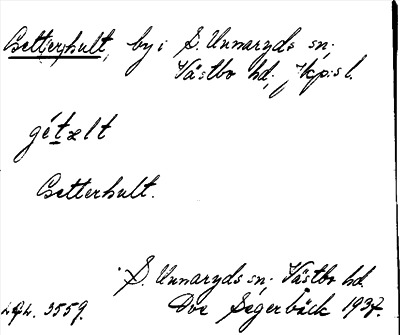 Getterhult, by i S. Unnaryds sn;
Västbo hd, Jkp:s l.
gétælt
Getterhult.
S. Unnaryds sn; Västbo hd.
Ove Segerbäck 1937.
3559.